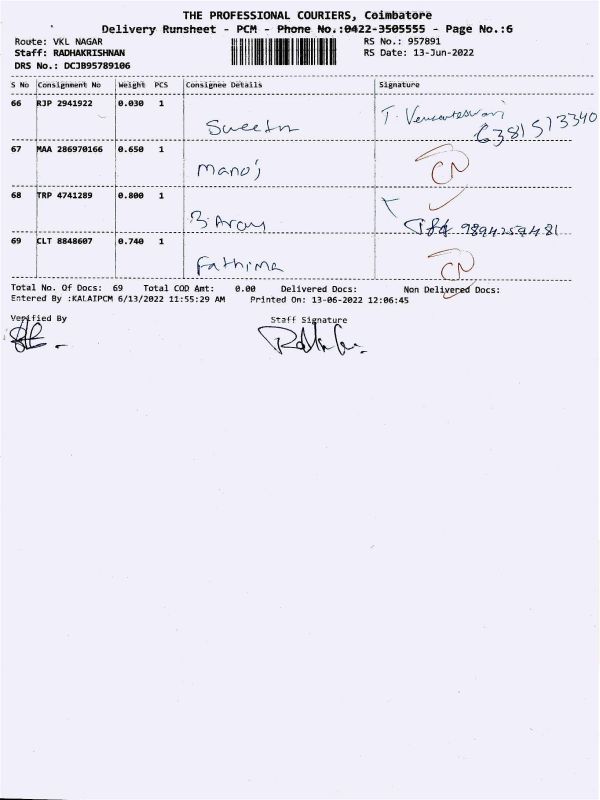 THE PROFESSIONAL COURIERS, Coimbatore
Delivery Runsheet - PCM - Phone No.:0422-3505555 - Page No.:6
Route: VKL NAGAR RS No.: 957891
Staff: RADHAKRISHNAN RS Date: 13-Jun-2022
DRS No.: DCJB95789106
S No Consignment No Weight PCS Consignee Details Signature
66 RJP 2941922 0.030 1
T. 6381513340
67 MAA 286970166 0.650 1
Manoj CN
68 TRP 4741289 0.800 1
9894259481
69 CLT 8848607 0.740 1
Fathima CN
Total No. Of Docs: 69 Total COD Amt: 0.00 Delivered Docs: Non Delivered Docs:
Entered By :KALAIPCM 6/13/2022 11:55:29 AM Printed On: 13-06-2022 12:06:45
Verified By Staff Signature